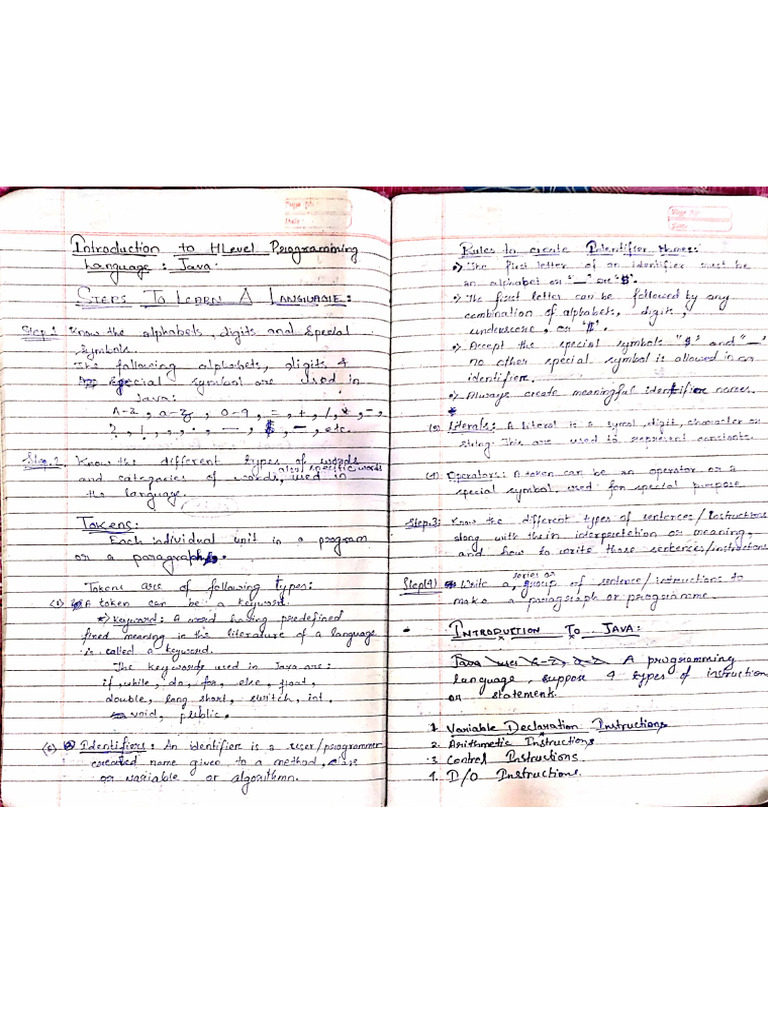 Page No.
Date
Introduction to HLevel Programming
Language : Java.
STEPS TO LEARN A LANGUAGE:
Step.1 Know the alphabets, digits and special
symbols.
The following alphabets, digits &
special symbol are used in
Java:
A-Z, a-z, 0-9, =, +, /, *, -,
?, !, , , . , —, $, –, etc.
Step.2 Know the different types of words
and categories of words, used in
also specific words
the language.
TOKENS:
Each individual unit in a program
or a paragraph.
Tokens are of following types:
(1) A token can be a keyword.
Keyword: A word having predefined
fixed meaning in the literature of a language
is called a keyword.
The keywords used in Java are:
if, while, do, for, else, float,
double, long short, switch, int.
void, public.
(2) Identifiers: An identifier is a user/programmer
created name given to a method, class
or variable or algorithm.
Page No.
Date
Rules to create Identifier Names:
The first letter of an identifier must be
an alphabet or "_" or '$'.
The first letter can be followed by any
combination of alphabets, digits,
underscore, or '$'.
Accept the special symbols "$" and "_"
no other special symbol is allowed in an
identifier.
Always create meaningful identifier names.
(3) Literals: A literal is a symol, digit, character or
string. This are used to represent constants.
(4) Operators: A token can be an operator or a
special symbol used for special purpose
Step.3: Know the different types of sentences/Instructions
along with their interpretation or meaning,
and how to write those sentences/instructions
Step(4) Write a series or group of sentence/intructions to
make a paragraph or programme.
INTRODUCTION TO JAVA:
Java uses A-Z, a-z A programming
language, suppose 4 types of instruction
or statement.
1. Variable Declaration Instructions
2. Arithmetic Instructions
3 Control Instructions.
4. I/O Instructions.